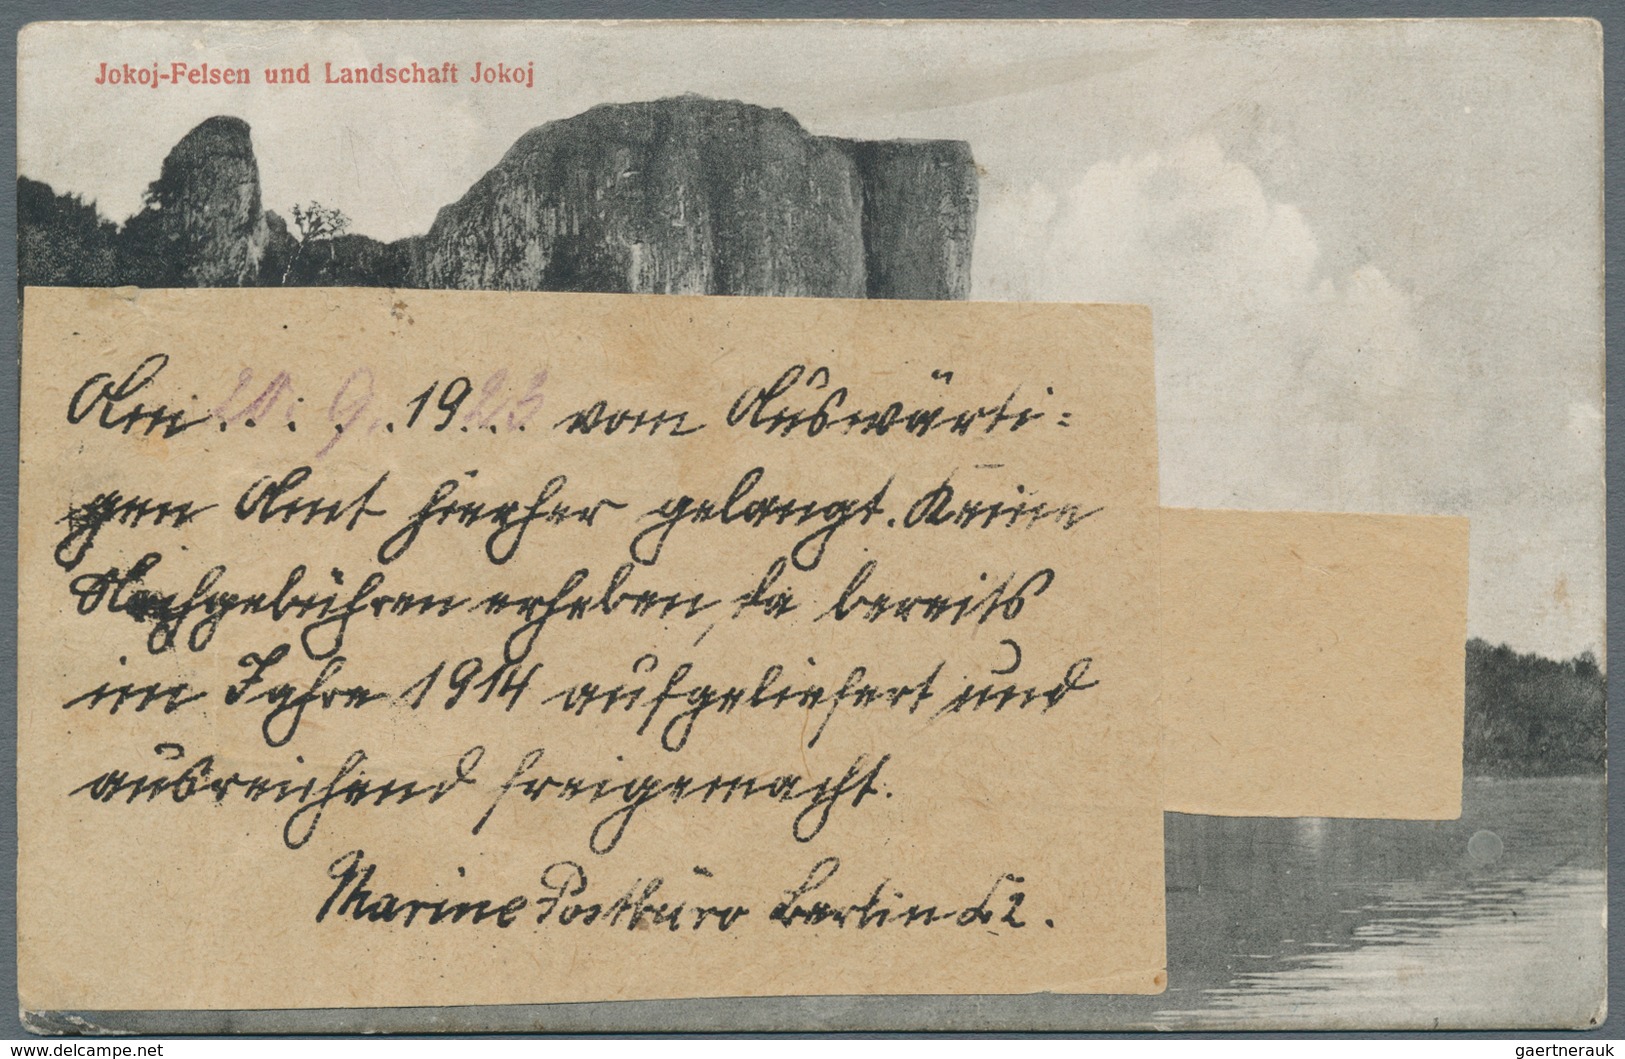 Jokoj-Felsen und Landschaft Jokoj
Am 20. 9. 1923 vom Auswärti-
gen Amt hierher gelangt. Keine
Nachgebühren erheben, da bereits
im Jahre 1914 aufgeliefert und
ausreichend freigemacht.
Marine Postbüro Berlin C2.
© www.delcampe.net
gaertnerauk